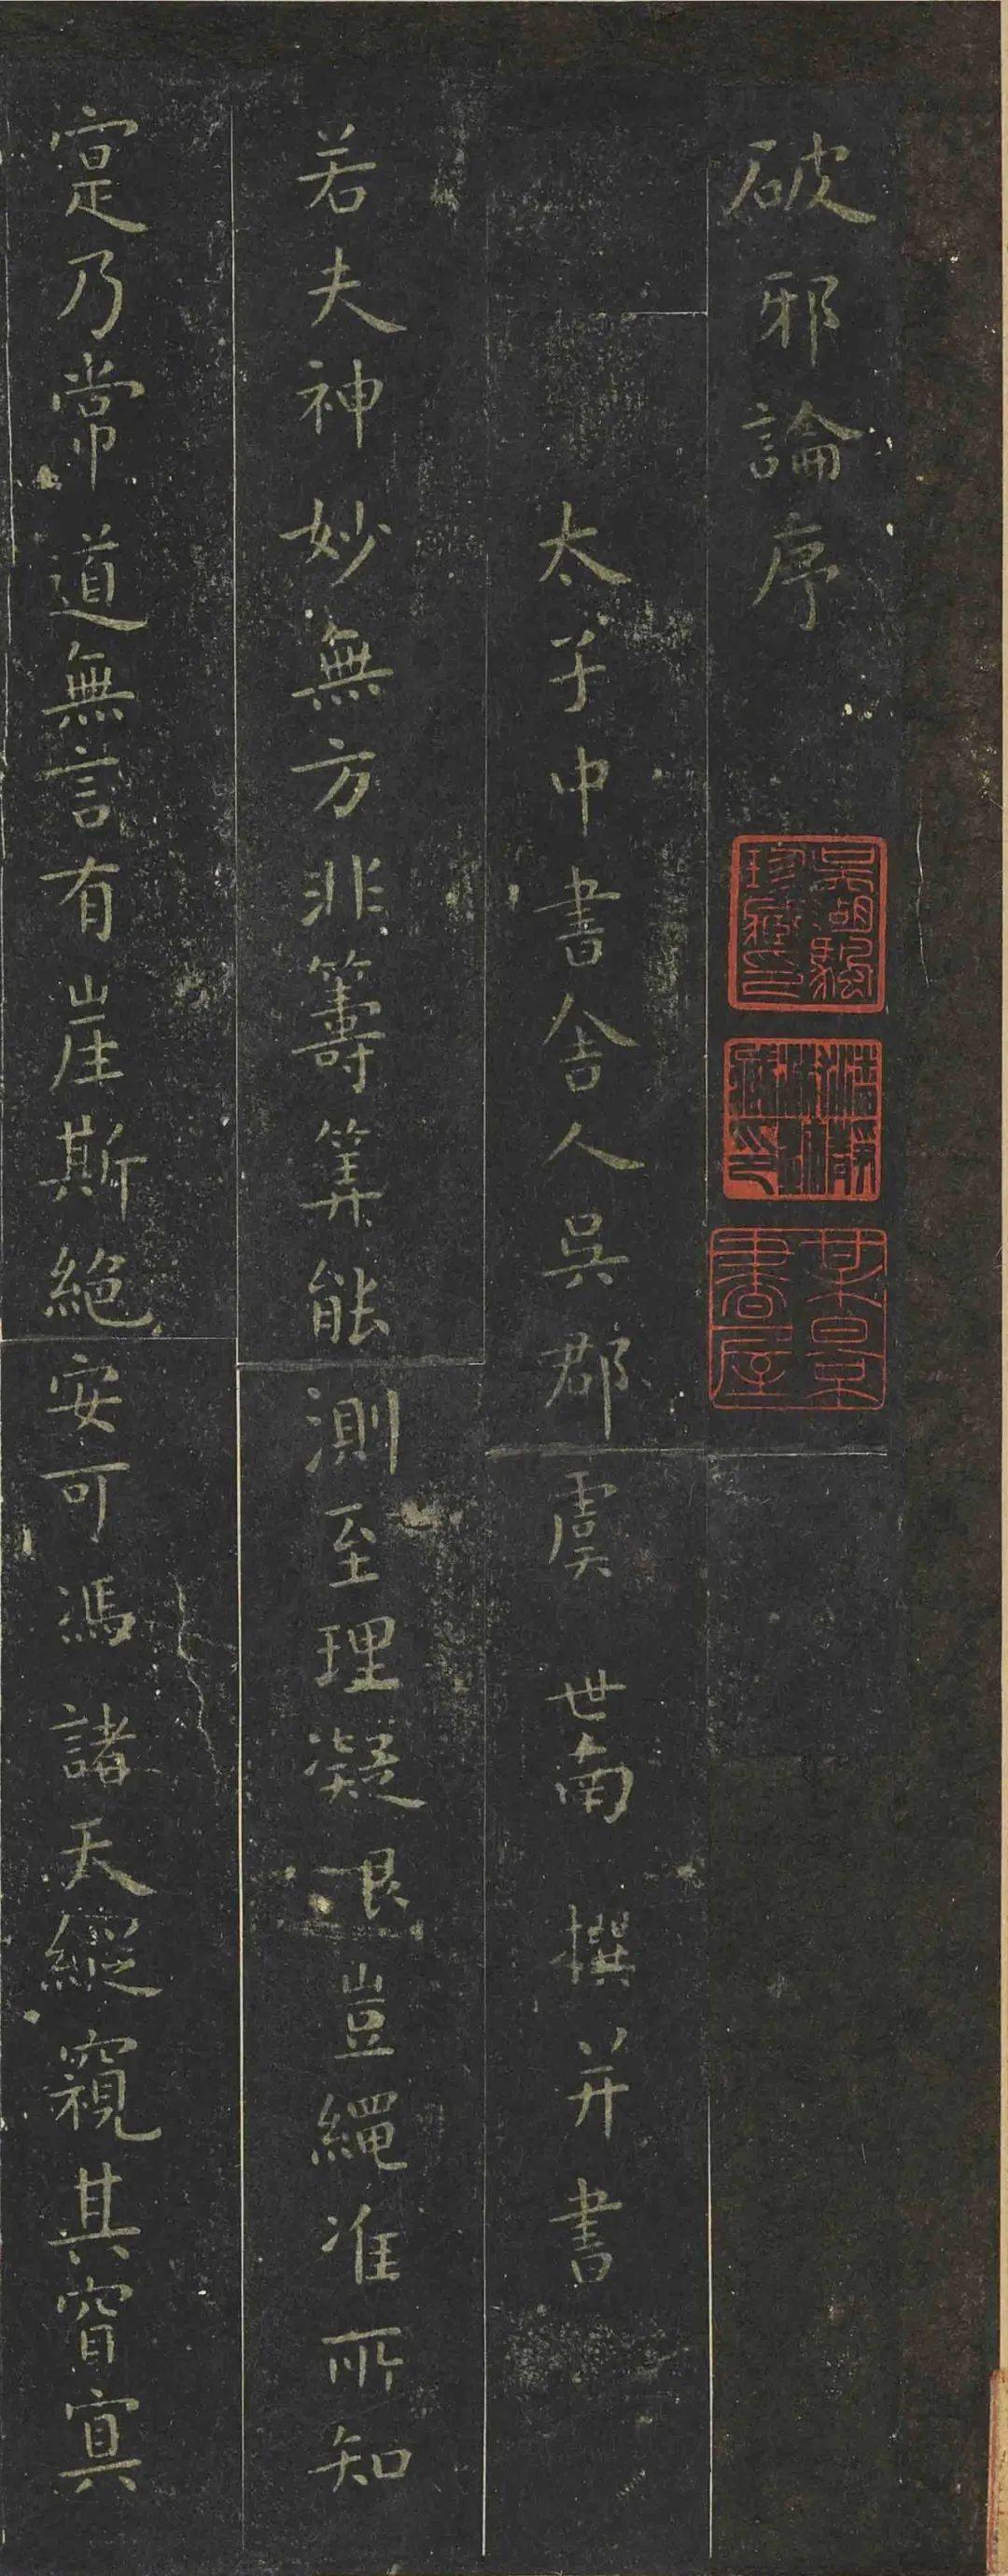 破邪論序
吳湖驅珍藏印
某景書屋
太子中書舍人吳郡虞世南撰并書
若夫神妙無方非籌筭能測至理凝邈豈繩准所知
寔乃常道無言有崖斯絕安可馮諸天縱窺其窅寘